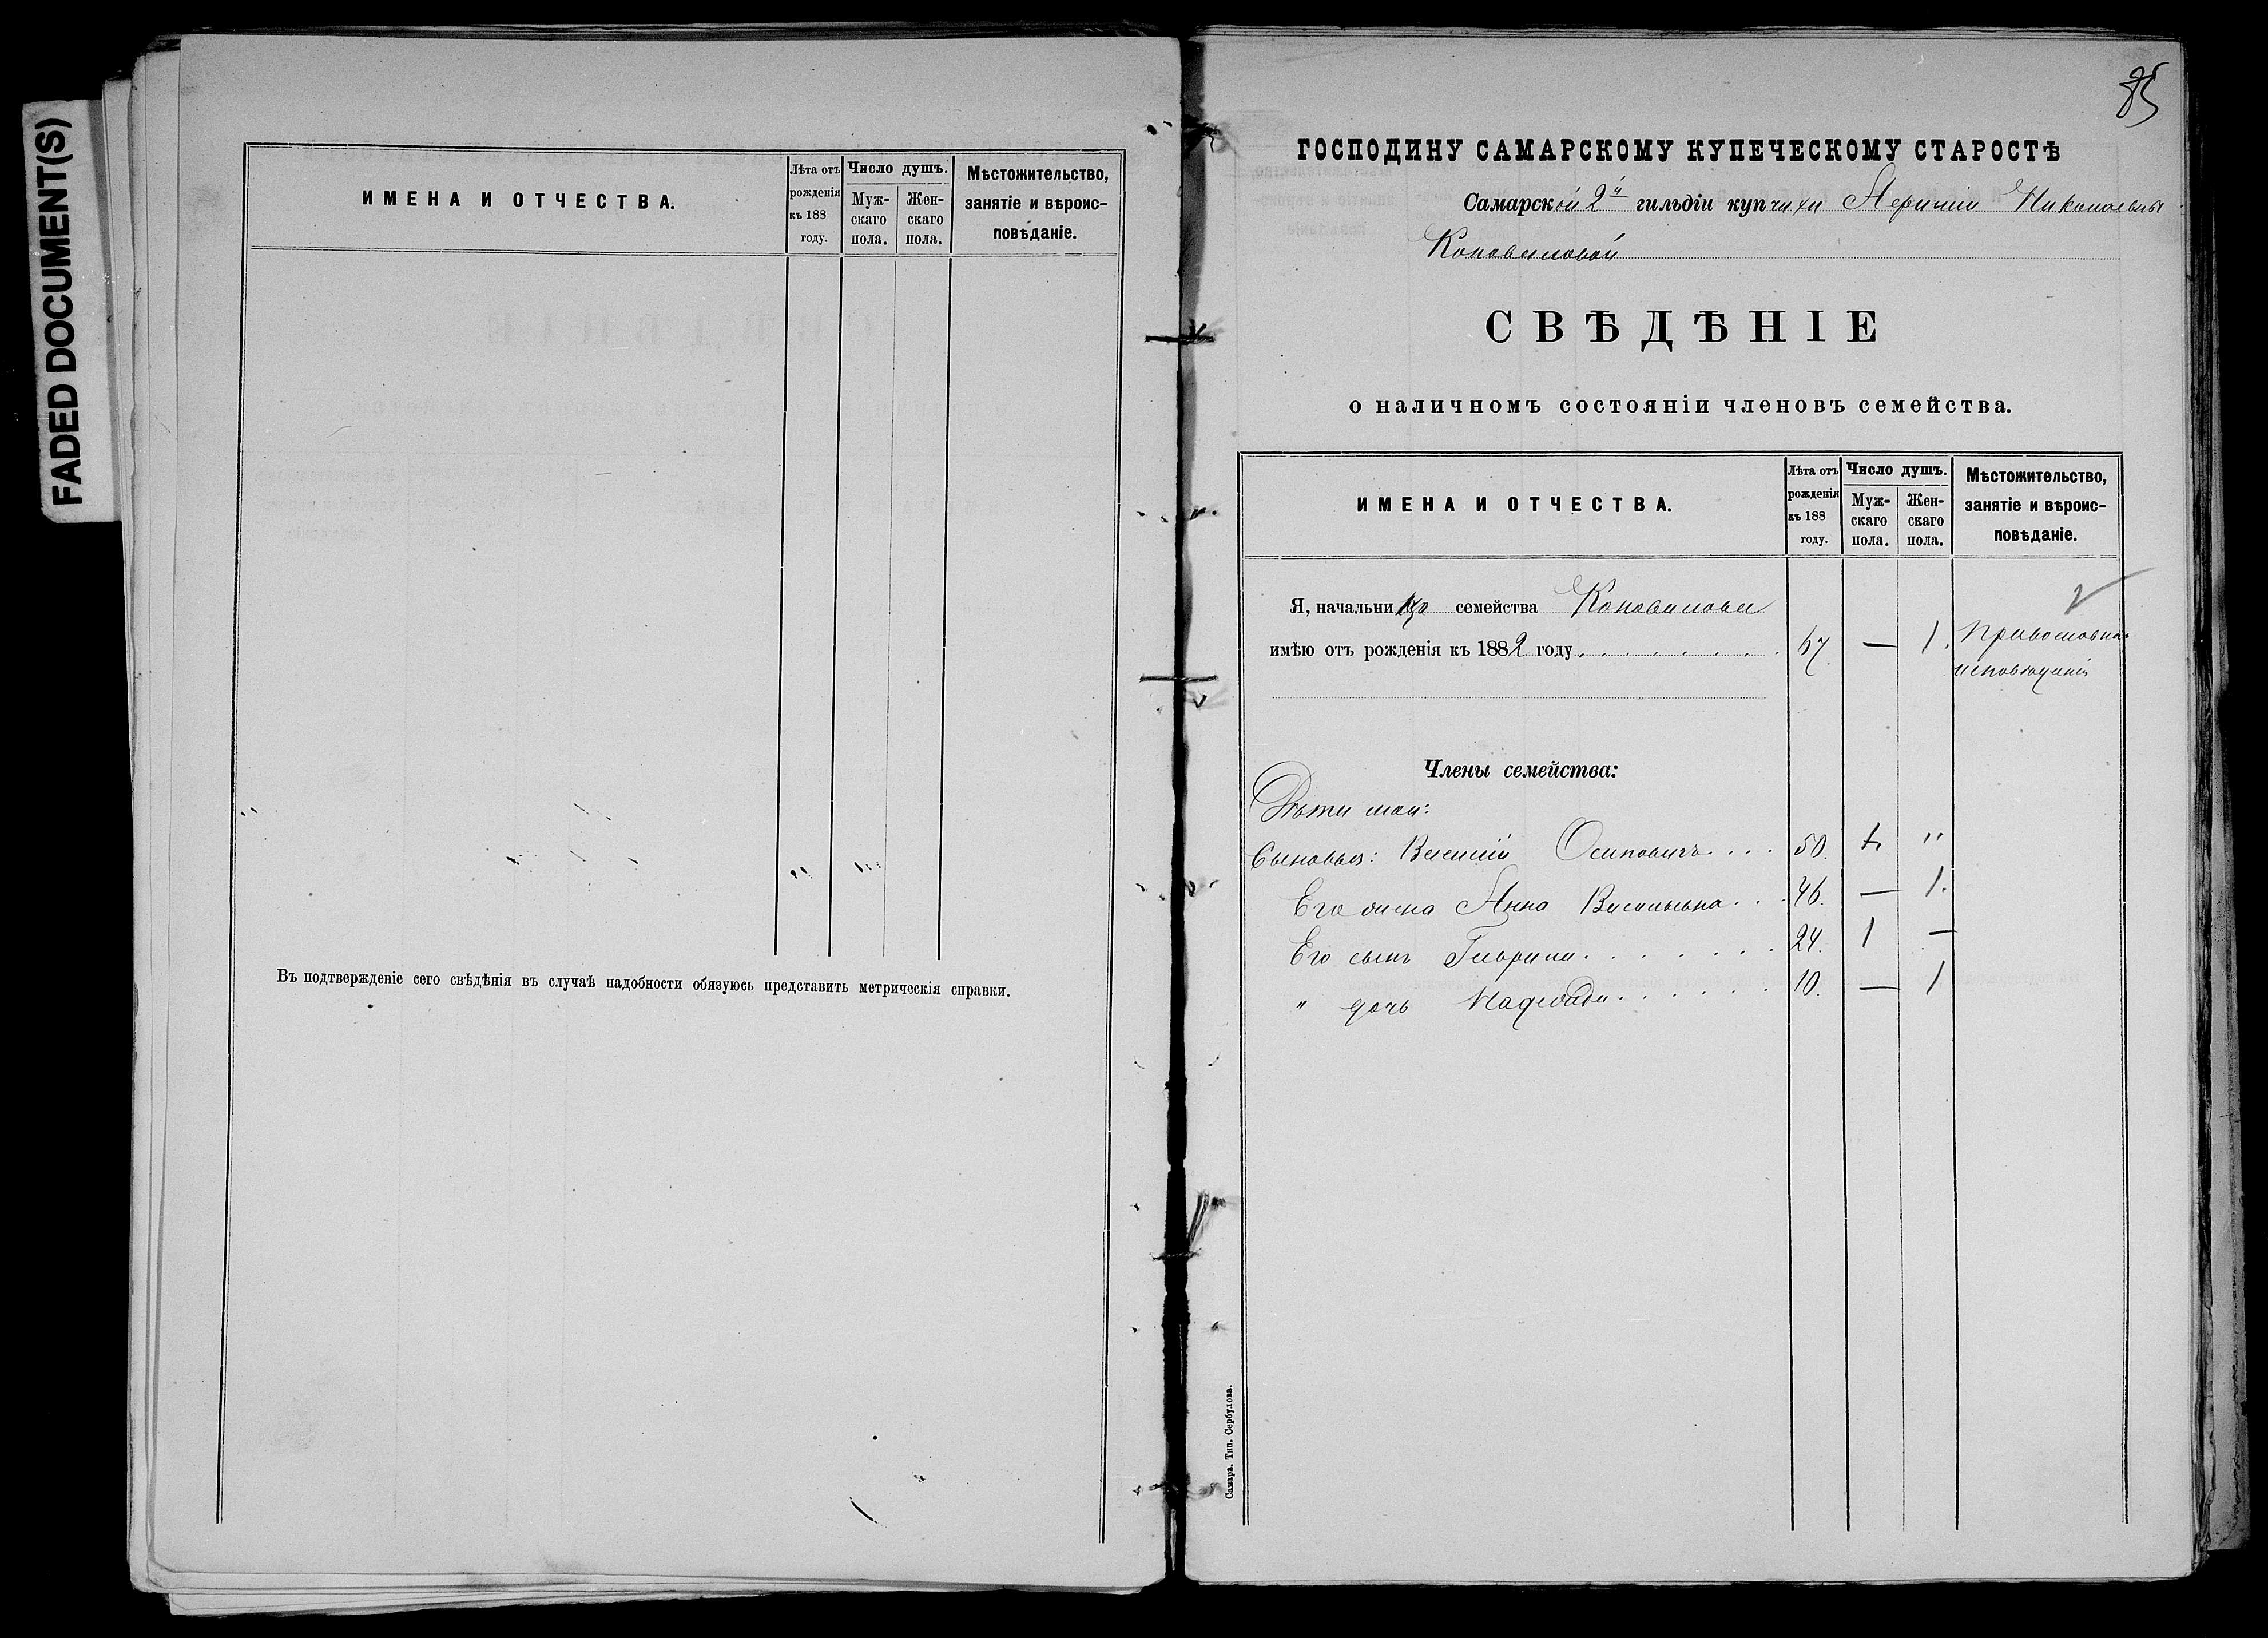 FADED DOCUMENT(S)
ИМЕНА И ОТЧЕСТВА.
Лѣта отъ
рожденія
къ 188
году.
Число душъ.
Муж-
скаго
пола.
Жен-
скаго
пола.
Мѣстожительство,
занятіе и вѣроис-
повѣданіе.
Въ подтвержденіе сего свѣдѣнія въ случаѣ надобности обязуюсь представить метрическія справки.
85
ГОСПОДИНУ САМАРСКОМУ КУПЕЧЕСКОМУ СТАРОСТѢ
Самарской 2й гильдіи купчихи Николаевны
Коноваловой
СВѢДѢНІЕ
о наличномъ состояніи членовъ семейства.
ИМЕНА И ОТЧЕСТВА.
Лѣта отъ
рожденія
къ 188
году.
Число душъ.
Муж-
скаго
пола.
Жен-
скаго
пола.
Мѣстожительство,
занятіе и вѣроис-
повѣданіе.
Я, начальница семейства Коновалова
имѣю отъ рожденія къ 1882 году 67 — 1. Православна
исповѣданія
Члены семейства:
Дѣти мои:
Сыновья: Василій Осиповичъ 50. 1. "
Его жена Анна Васильевна 46. — 1.
Его сынъ Гаврила 24. 1 —
" дочь Надежда 10. — 1
Самара. Тип. Сербулова.